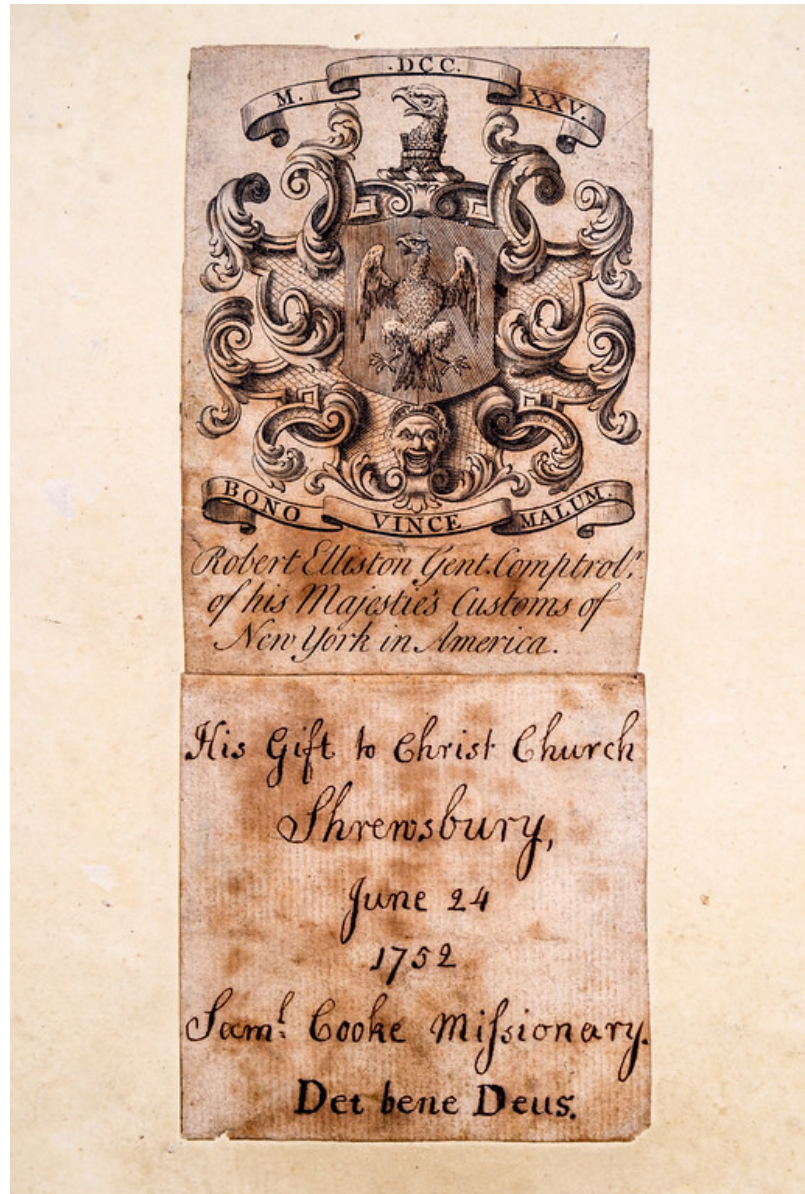 M. DCC. XXV.
BONO VINCE MALUM.
Robert Elliston Gent. Comptrolr.
of his Majestie's Customs of
New York in America.
His Gift to Christ Church
Shrewsbury,
June 24
1752
Saml. Cooke Miſsionary.
Det bene Deus.